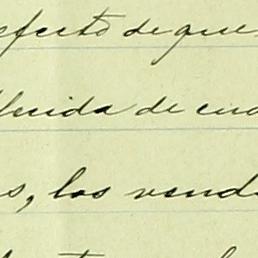 efecto de que
lecida de cua
s, los vende